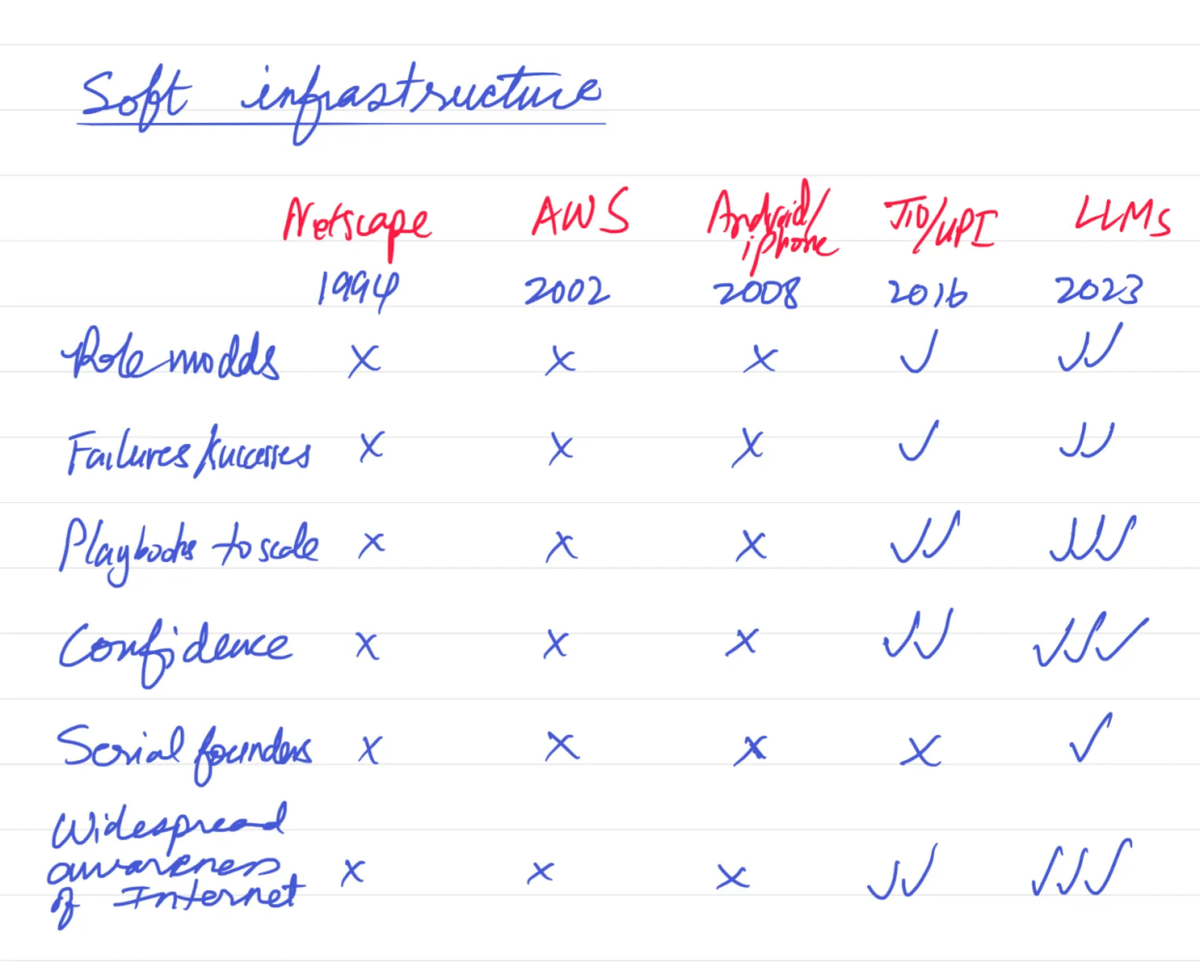 Soft infrastructure
Netscape AWS Android/ JIO/UPI LLMs
iphone
1994 2002 2008 2016 2023
Role models x x x ✓ ✓✓
Failures/successes x x x ✓ ✓✓
Playbooks to scale x x x ✓✓ ✓✓✓
Confidence x x x ✓✓ ✓✓✓
Serial founders x x x x ✓
Widespread
awareness x x x ✓✓ ✓✓✓
of Internet